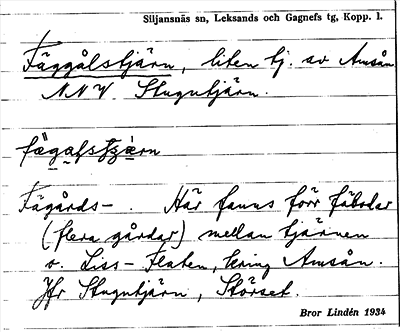 Siljansnäs sn, Leksands och Gagnefs tg, Kopp. l.
Fäggålstjärn, liten tj. sv Amsån
NNV Stugutjärn.
Fägårds- . Här fanns förr fäbodar
(flera gårdar) mellan tjärnen
o. Liss-Flaten, kring Amsån.
Jfr Stugutjärn, Störset.
Bror Lindén 1934